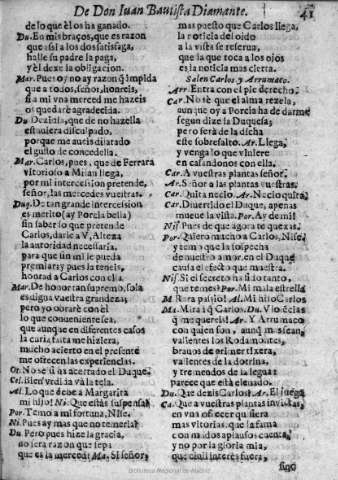 De Don Iuan Bautista Diamante. 41
de lo que èl os ha ganado.
Du. En mis braços, que es razon
que assi a los dos satisfaga,
halle su padre la paga,
y èl dexe la obligacion.
Mar. Pues oy no ay razon q̃ impida
que a todos, señor, honreis,
si a mi vna merced me hazeis
os quedarè agradecida.
Du. Dezilla, que de no hazella
estuviera disculpado,
porque me aueis dilatado
el gusto de concedella.
Mar. Carlos, pues, que de Ferrara
vitorioso a Milan llega,
por mi intercesion pretende,
señor, las mercedes vuestras.
Duq. De tan grande intercesion
es merito (ay Porcia bella)
sin saber lo que pretende
Carlos, darle a V. Alteza
la autoridad necessaria,
para que sin mi le pueda
premiar, y pues la teneis,
honrad a Carlos con ella.
Mar. De honor tan supremo, solo
es digna vuestra grandeza,
pero yo obrarè con èl
lo que conueniente sea,
que aunque en diferentes casos
mucho acierto en el presente
me ofrecen las experiencias.
Or. No se si has acertado el Duque.
Al. Lo que debe a Margarita
mi hijo! Ni. Que estàs suspensa?
Por. Temo a mi fortuna, Nise.
Ni. Pues ay mas que no temerla?
Du. Pero pues hize la gracia,
no serà razon que sepa
que es la merced? Ma. Si señor,
mas puesto que Carlos llega,
la noticia del oido
a la vista se reserua,
que la que toca a los ojos
es la noticia mas cierta.
Salen Carlos y Arrumaco.
Arr. Entra con el pie derecho.
Car. No sè que el alma rezela,
aunque oy a Porcia ha de darme
segun dize la Duquesa;
pero serà de la dicha
este sobresalto. Ar. Llega,
y venga lo que viniere
en casandonos con ella.
Car. A vuestras plantas señor.
Ar. Señor a las plantas vuestras.
Car. Quita necio. Ar. Necio quita.
Ca. Diuertido el Duque, apenas
mueue la vista. Por. Ay de mi!
Nis. Pues de que agora te quexas.
Por. Quiero mucho a Carlos, Nise,
y temo que la sospecha
de nuestro amor en el Duque
causa el efecto que muestra.
Nis. Si el secreto ha sido tanto,
que temes? Por. Mi mala estrella
M. Rara passio! Al. Mi hijo Carlos
Ma. Mirad q̃ Carlos. Du. Violẽcias
q̃ me quereis! Ar. Y Arrumaco
con quien son, aunq̃ mascàran,
valientes los Rodamontes,
braços de primer tixera,
valientes de la dotrina,
y tremendos de la legua:
parece que està eleuado.
Du. Que dezis Carlos? Ar. El juega.
Ca. Que a vuestras plantas inuictas,
en vna ofrecer quisiera
mas vitorias, que la fama
con mados aplausos cuenta,
y no por la gloria mia,
que ciuil interès fuera,
sino
Biblioteca Nacional de Madrid